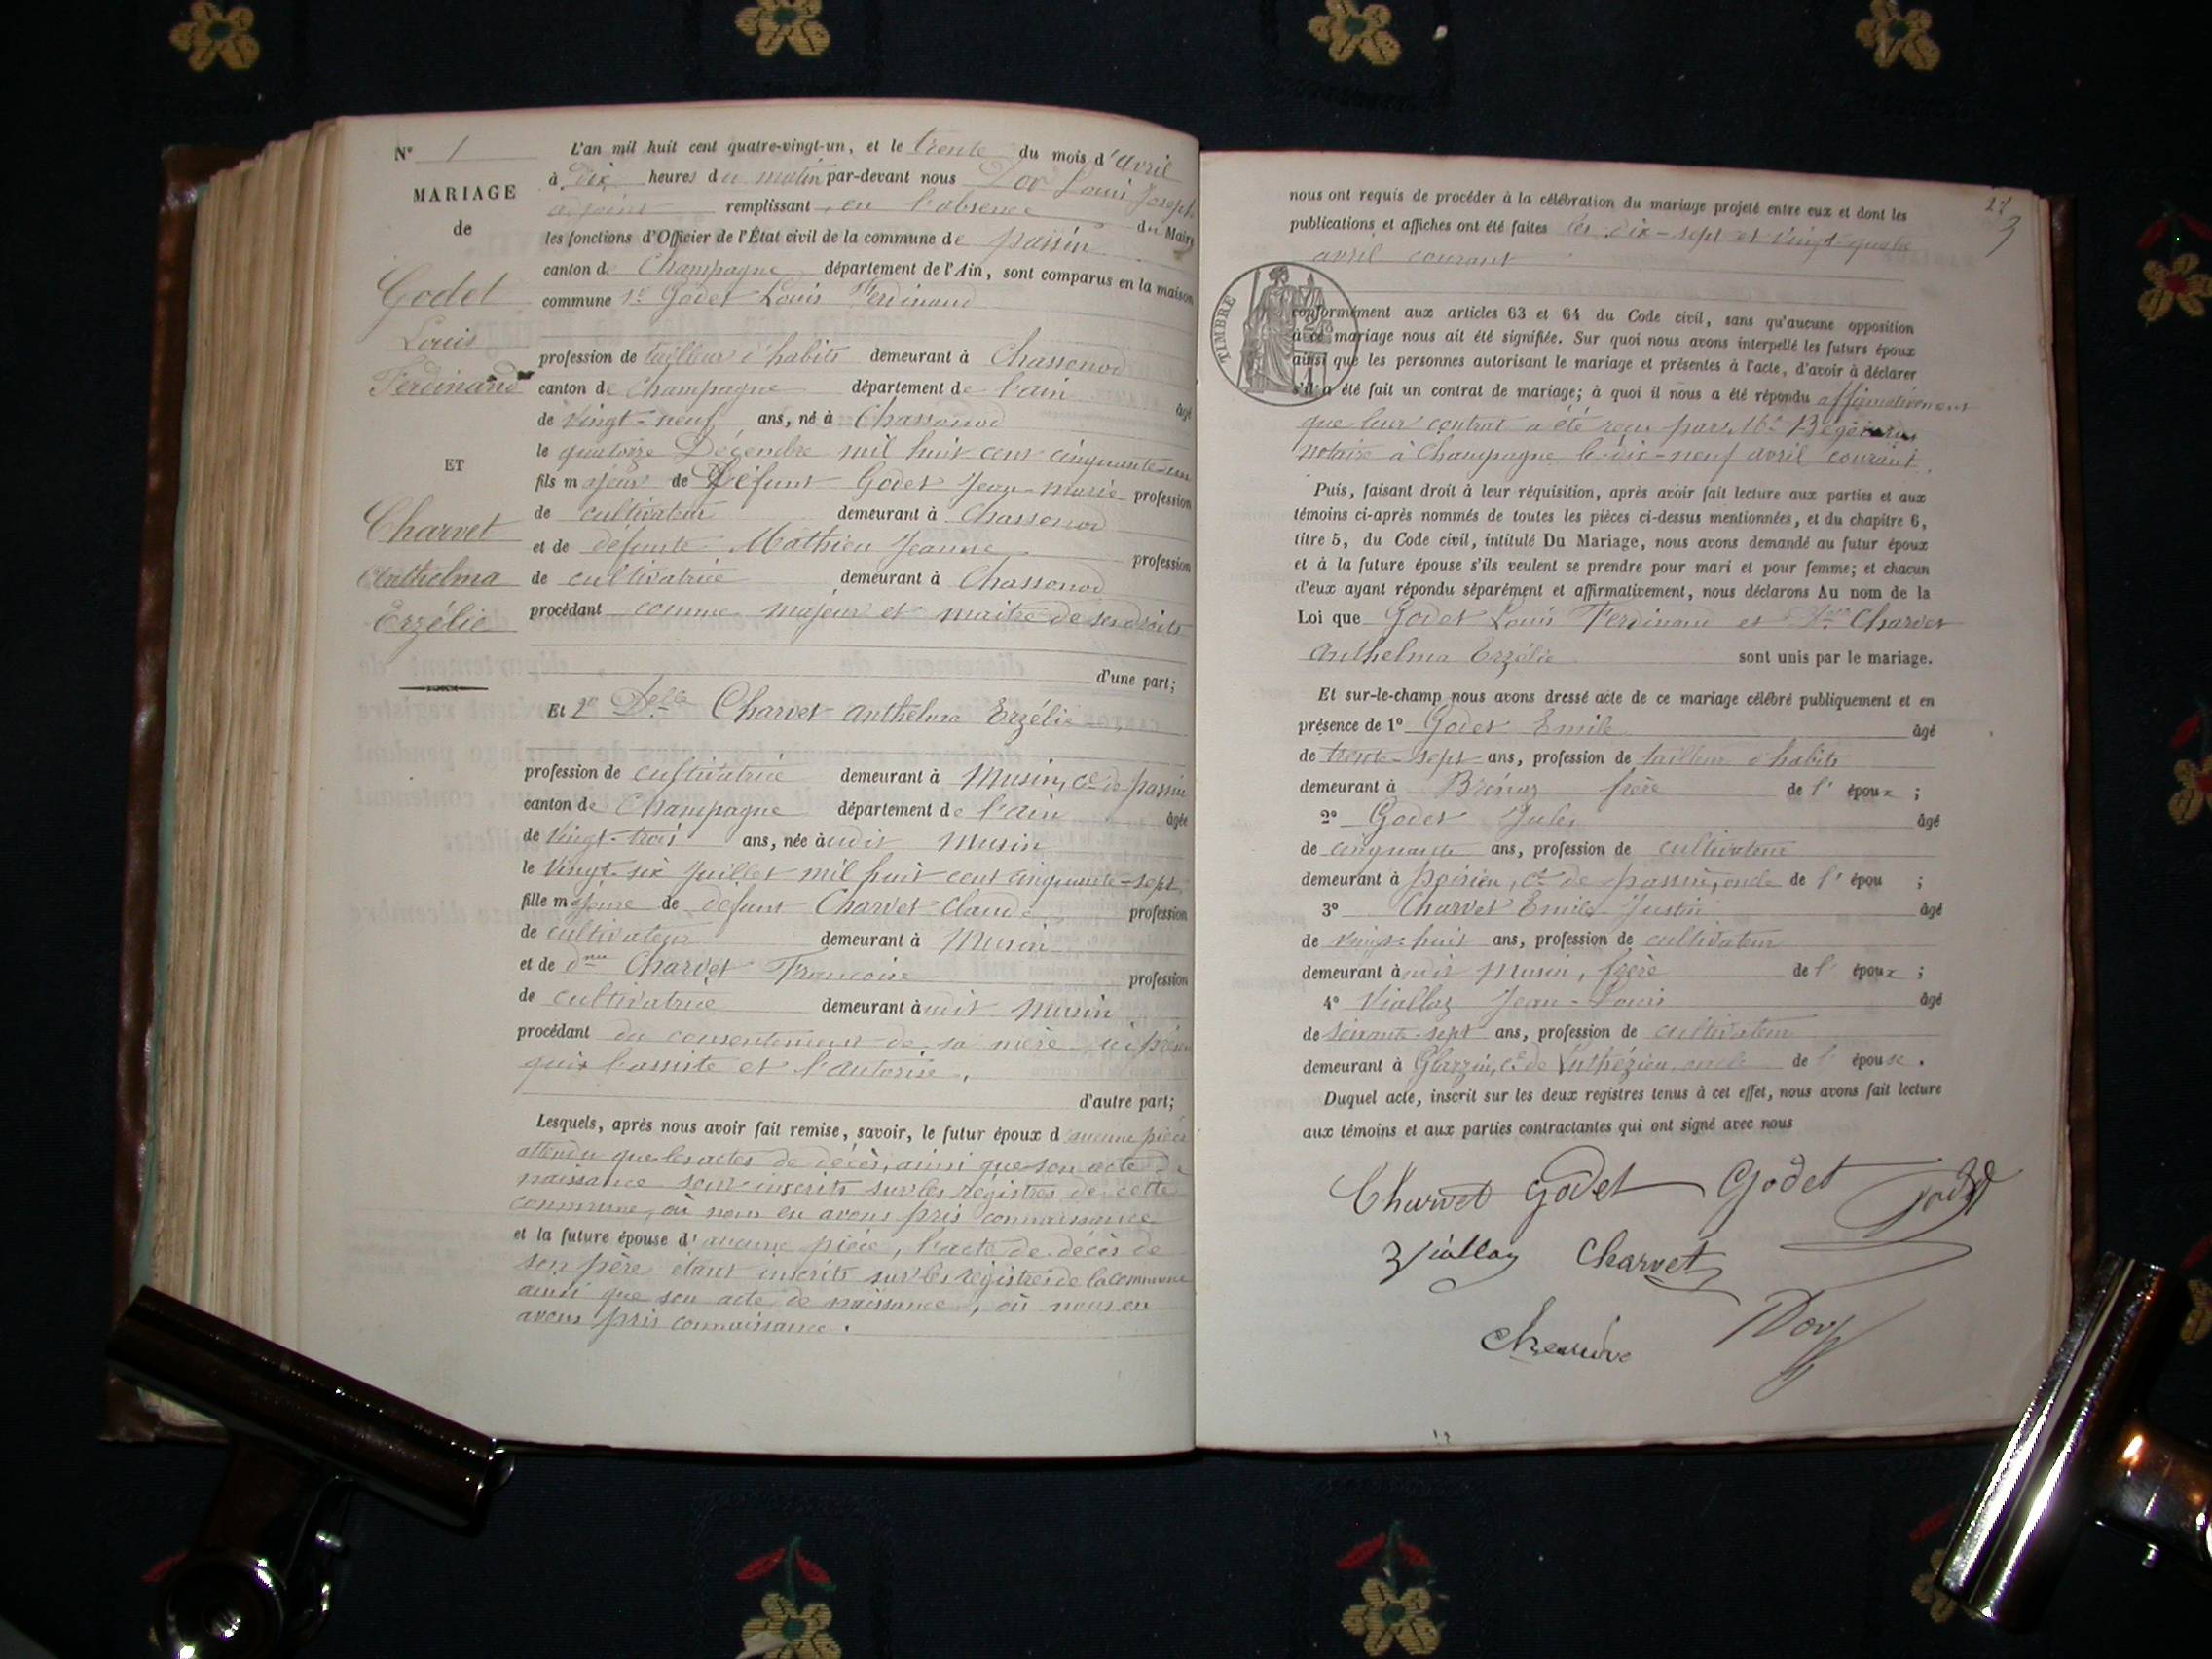 N° 1
MARIAGE
de
Godet
Louis
Ferdinand
ET
Charvet
Anthelma
Erzélie
L'an mil huit cent quatre-vingt-un, et le trente du mois d'avril
à dix heures du matin par-devant nous Louis Joseph
adjoint remplissant en l'absence du Maire
les fonctions d'Officier de l'État civil de la commune de passin
canton de Champagne département de l'Ain, sont comparus en la maison
commune 1° Godet Louis Ferdinand
profession de tailleur d'habits demeurant à Chassonod
canton de Champagne département de l'ain âgé
de vingt-neuf ans, né à Chassonod
le quatorze Décembre mil huit cent cinquante-un
fils majeur de Défunt Godet Jean-Marie profession
de cultivateur demeurant à Chassonod
et de défunte Mathieu Jeanne profession
de cultivatrice demeurant à Chassonod
procédant comme majeur et maitre de ses droits
d'une part;
Et 2° Delle Charvet Anthelma Erzélie
profession de cultivatrice demeurant à Musin, Cne de passin
canton de Champagne département de l'ain âgée
de vingt-trois ans, née àudit Musin
le vingt-six Juillet mil huit cent cinquante-sept
fille majeure de défunt Charvet Claude profession
de cultivateur demeurant à Musin
et de dme Charvet Francoise profession
de cultivatrice demeurant àudit Musin
procédant du consentement de sa mère ici
qui l'assiste et l'autorise,
d'autre part;
Lesquels, après nous avoir fait remise, savoir, le futur époux d'aucune pièce
attendu que les actes de décès, ainsi que son acte de
naissance sont inscrits sur les régistres de cette
commune, où nous en avons pris connaissance
et la future épouse d'aucune pièce, l'acte de décès de
son père étant inscrits sur les régistres de la commune
ainsi que son acte de naissance, où nous en
avons pris connaissance.
27
3
nous ont requis de procéder à la célébration du mariage projeté entre eux et dont les
publications et affiches ont été faites les dix-sept et vingt-quatre
avril courant
TIMBRE
conformément aux articles 63 et 64 du Code civil, sans qu'aucune opposition
à ce mariage nous ait été signifiée. Sur quoi nous avons interpellé les futurs époux
ainsi que les personnes autorisant le mariage et présentes à l'acte, d'avoir à déclarer
s'il a été fait un contrat de mariage; à quoi il nous a été répondu affirmativement
que leur contrat a été reçu par Me
notaire à Champagne le dix-neuf avril courant.
Puis, faisant droit à leur réquisition, après avoir fait lecture aux parties et aux
témoins ci-après nommés de toutes les pièces ci-dessus mentionnées, et du chapitre 6,
titre 5, du Code civil, intitulé Du Mariage, nous avons demandé au futur époux
et à la future épouse s'ils veulent se prendre pour mari et pour femme; et chacun
d'eux ayant répondu séparément et affirmativement, nous déclarons Au nom de la
Loi que Godet Louis Ferdinand et Dlle Charvet
Anthelma Erzélie sont unis par le mariage.
Et sur-le-champ nous avons dressé acte de ce mariage célébré publiquement et en
présence de 1° Godet Emile âgé
de trente-sept ans, profession de tailleur d'habits
demeurant à Brénaz frère de l'époux ;
2° Godet Jules âgé
de cinquante ans, profession de cultivateur
demeurant à poisieu, Cne de passin, oncle de l'épou ;
3° Charvet Emile Justin âgé
de vingt-huit ans, profession de cultivateur
demeurant àudit Musin, frère de l'époux ;
4° Viallaz Jean-Louis âgé
de soixante-sept ans, profession de cultivateur
demeurant à Cne de Luthézieu, oncle de l'épouse.
Duquel acte, inscrit sur les deux registres tenus à cet effet, nous avons fait lecture
aux témoins et aux parties contractantes qui ont signé avec nous
Charvet Godet Godet Godet
Viallaz Charvet